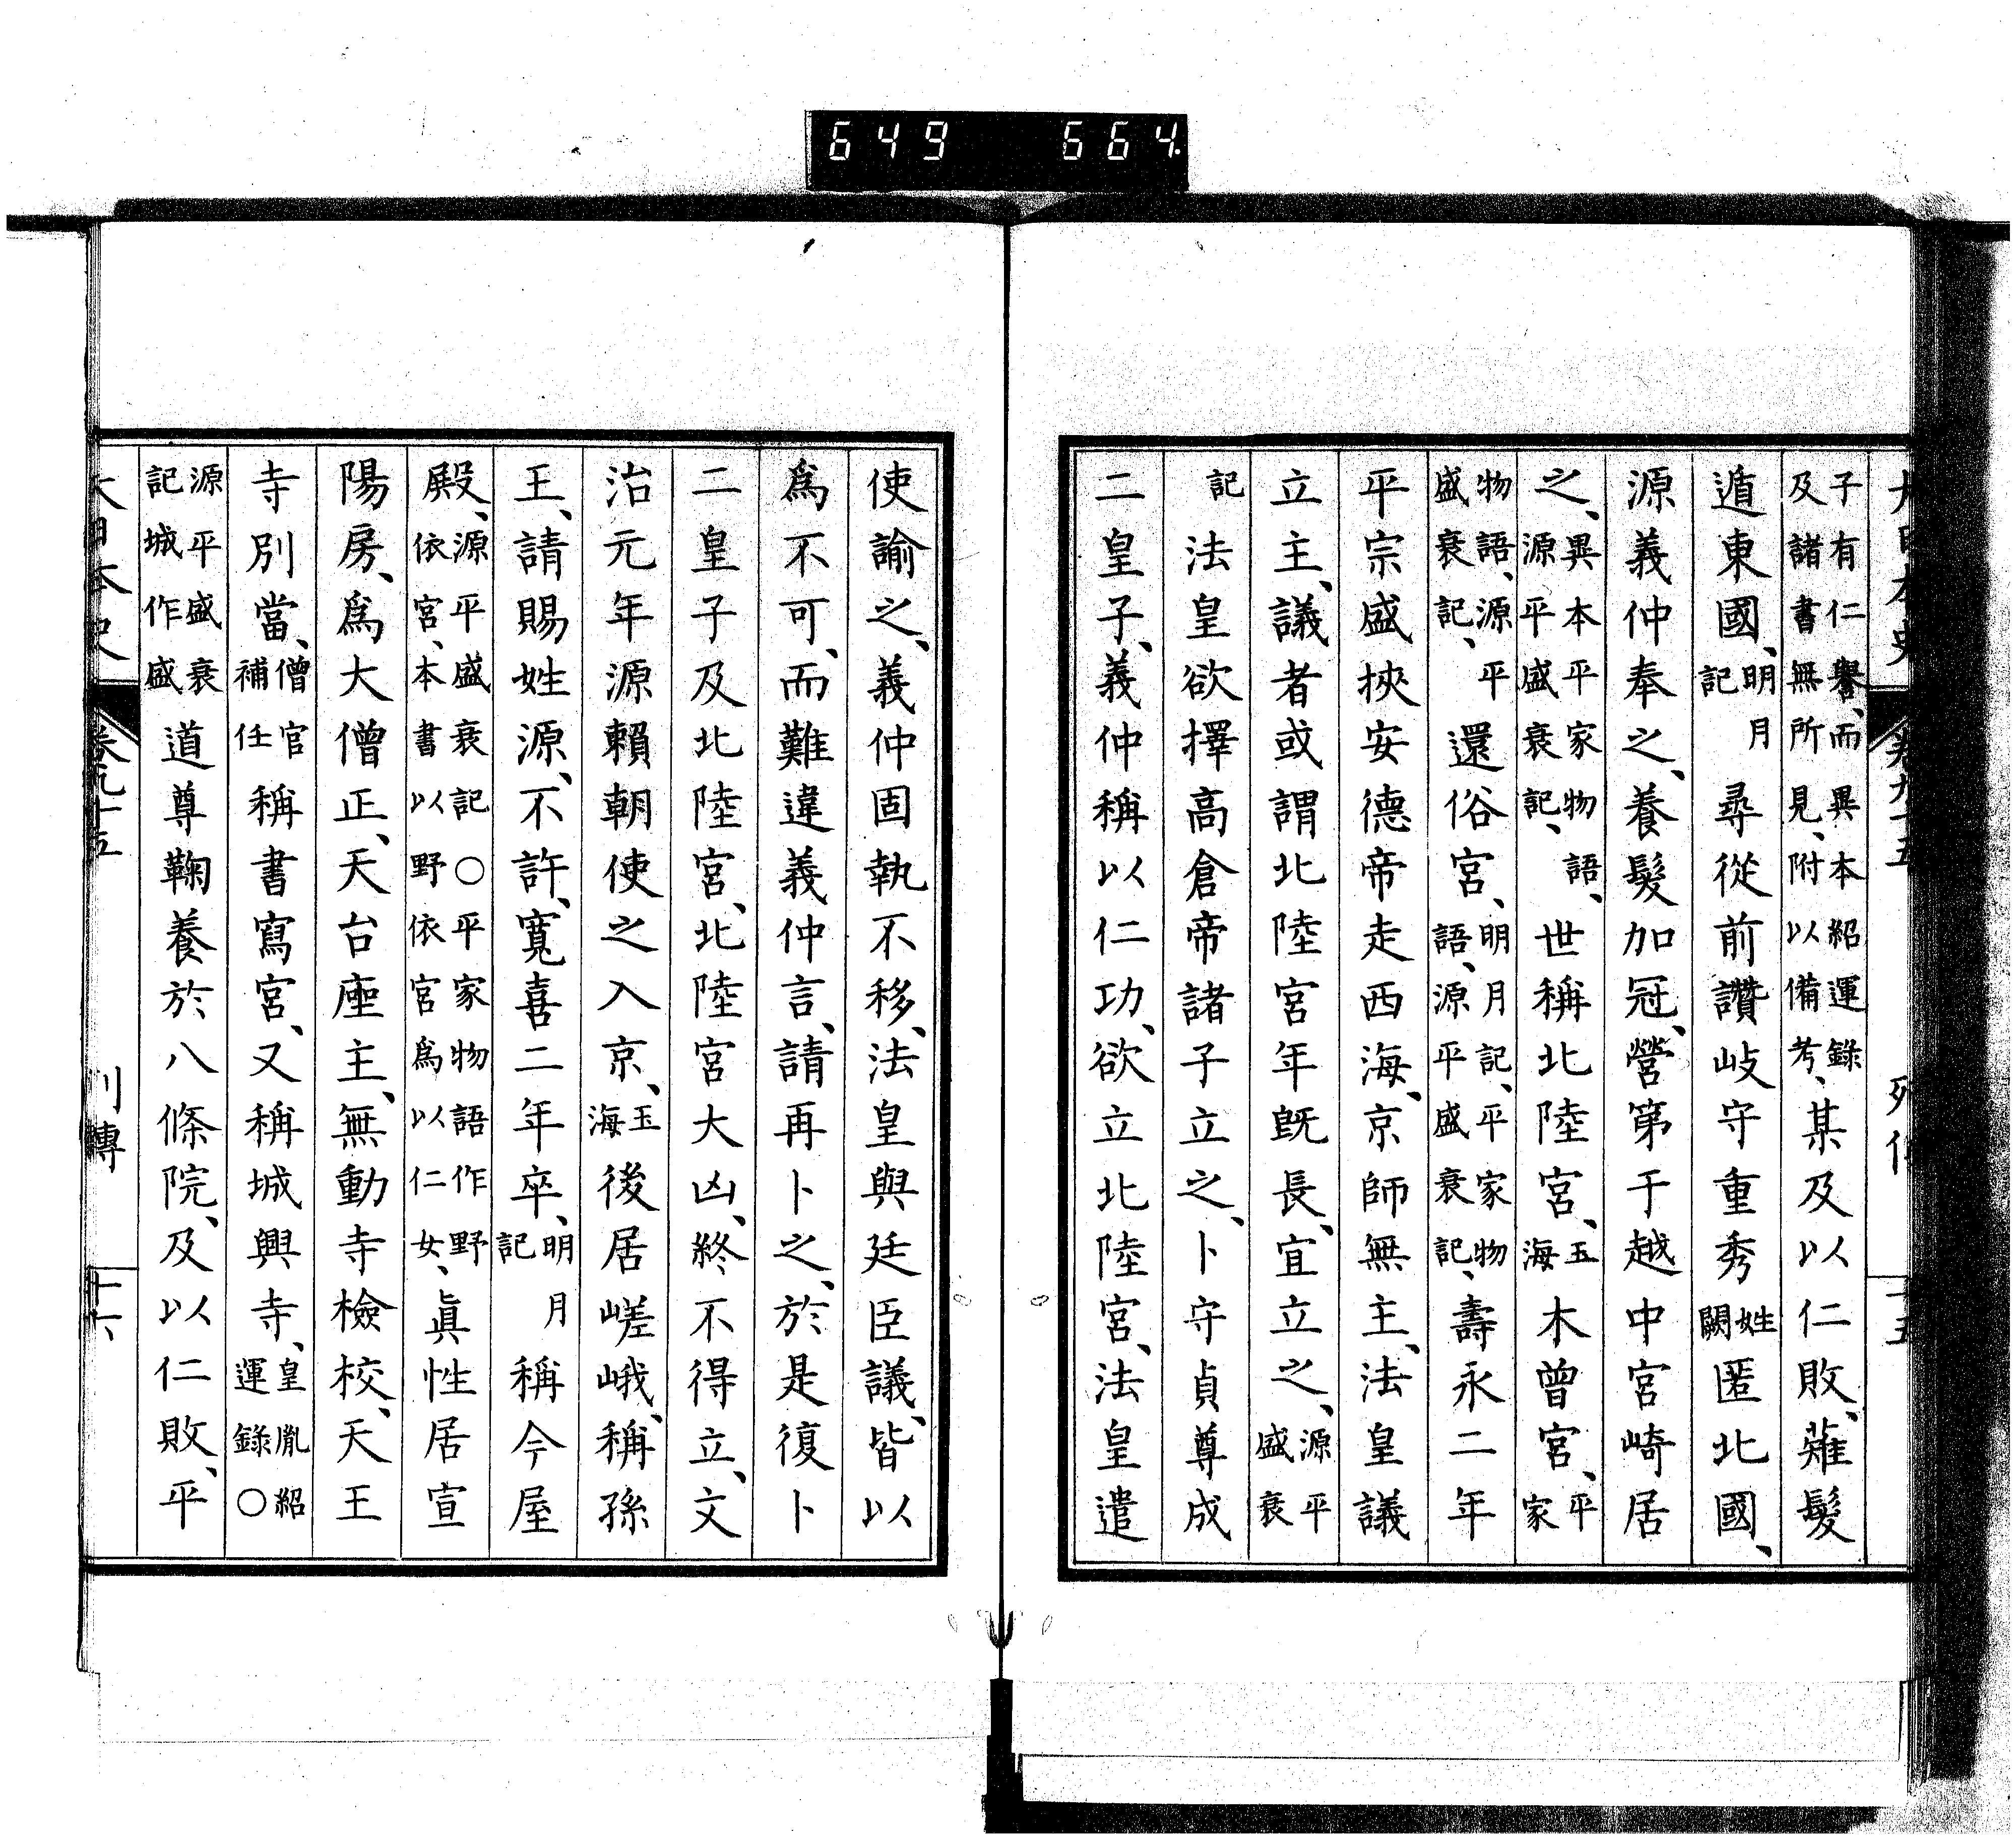 649 664
大日本史 卷九十五 列傳 十五
子有仁譽、而異本紹運錄及諸書無所見、附以備考、某及以仁敗、薙髮
遁東國、明月記尋從前讚岐守重秀姓闕匿北國、
源義仲奉之、養髮加冠、營第于越中宮崎居
之、異本平家物語、源平盛衰記、世稱北陸宮、玉海木曾宮、平家
物語、源平盛衰記、還俗宮、明月記、平家物語、源平盛衰記、壽永二年
平宗盛挾安德帝走西海、京師無主、法皇議
立主、議者或謂北陸宮年既長、宜立之、源平盛衰
記法皇欲擇高倉帝諸子立之、卜守貞尊成
二皇子、義仲稱以仁功、欲立北陸宮、法皇遣
使諭之、義仲固執不移、法皇與廷臣議、皆以
爲不可、而難違義仲言、請再卜之、於是復卜
二皇子及北陸宮、北陸宮大凶、終不得立、文
治元年源賴朝使之入京、玉海後居嵯峨、稱孫
王、請賜姓源、不許、寬喜二年卒、明月記稱今屋
殿、源平盛衰記○平家物語作野依宮、本書以野依宮爲以仁女、眞性居宣
陽房、爲大僧正、天台座主、無動寺檢校、天王
寺別當、僧官補任稱書寫宮、又稱城興寺、皇胤紹運錄○
源平盛衰記城作盛道尊鞠養於八條院、及以仁敗、平
大日本史 卷九十五 列傳 十六